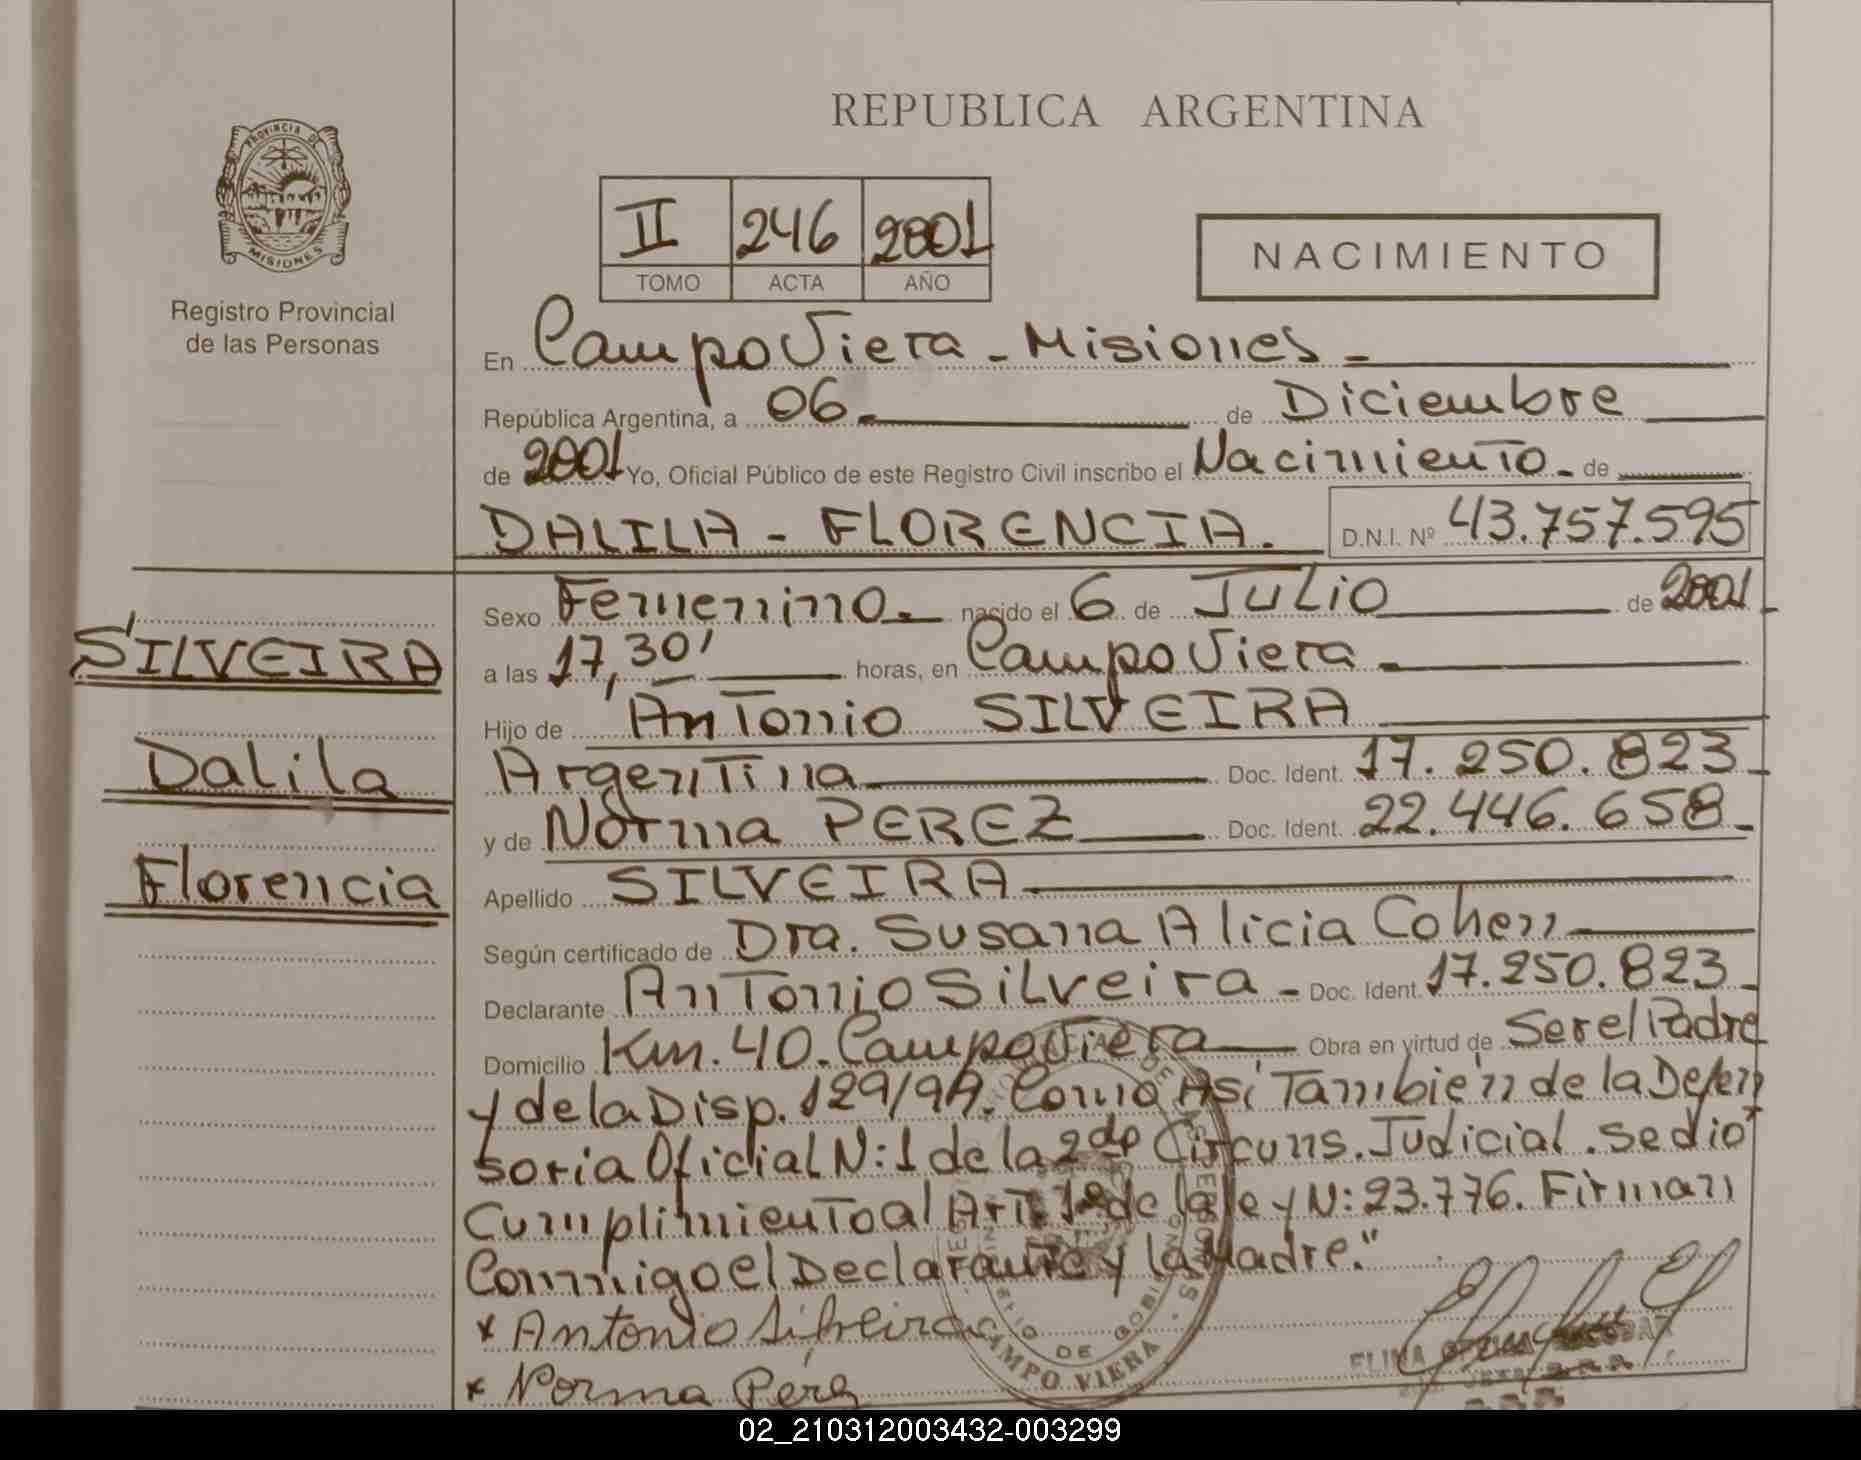 REPUBLICA ARGENTINA
PROVINCIA DE
MISIONES
Registro Provincial
de las Personas
II 246 2001
TOMO ACTA AÑO
NACIMIENTO
En Campo Viera - Misiones -
República Argentina, a 06 de Diciembre
de 2001 Yo, Oficial Público de este Registro Civil inscribo el Nacimiento - de
DALILA - FLORENCIA. D.N.I. Nº 43.757.595
SILVEIRA
Dalila
Florencia
Sexo Femenino. nacido el 6 de Julio de 2001 -
a las 17,30' horas, en Campo Viera -
Hijo de Antonio SILVEIRA
Argentina Doc. Ident. 17.250.823 -
y de Norma PEREZ Doc. Ident. 22.446.658 -
Apellido SILVEIRA
Según certificado de Dra. Susana Alicia Cohen
Declarante Antonio Silveira - Doc. Ident. 17.250.823 -
Domicilio Km. 40. Campo Viera Obra en virtud de Ser el Padre
y de la Disp. 129/99. Como Así También de la Defen
soria Oficial N:1 de la 2da Circuns. Judicial. se dio
Cumplimiento al Art. 12 de la ley N: 23.776. Firman
Conmigo el Declarante y la Madre."
x Antonio Silveira
x Norma Perez
CAMPO VIERA
02_210312003432-003299